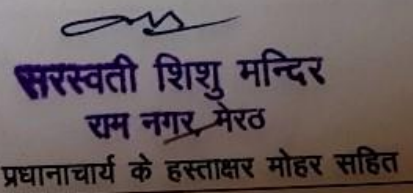 सरस्वती शिशु मन्दिर
राम नगर, मेरठ
प्रधानाचार्य के हस्ताक्षर मोहर सहित